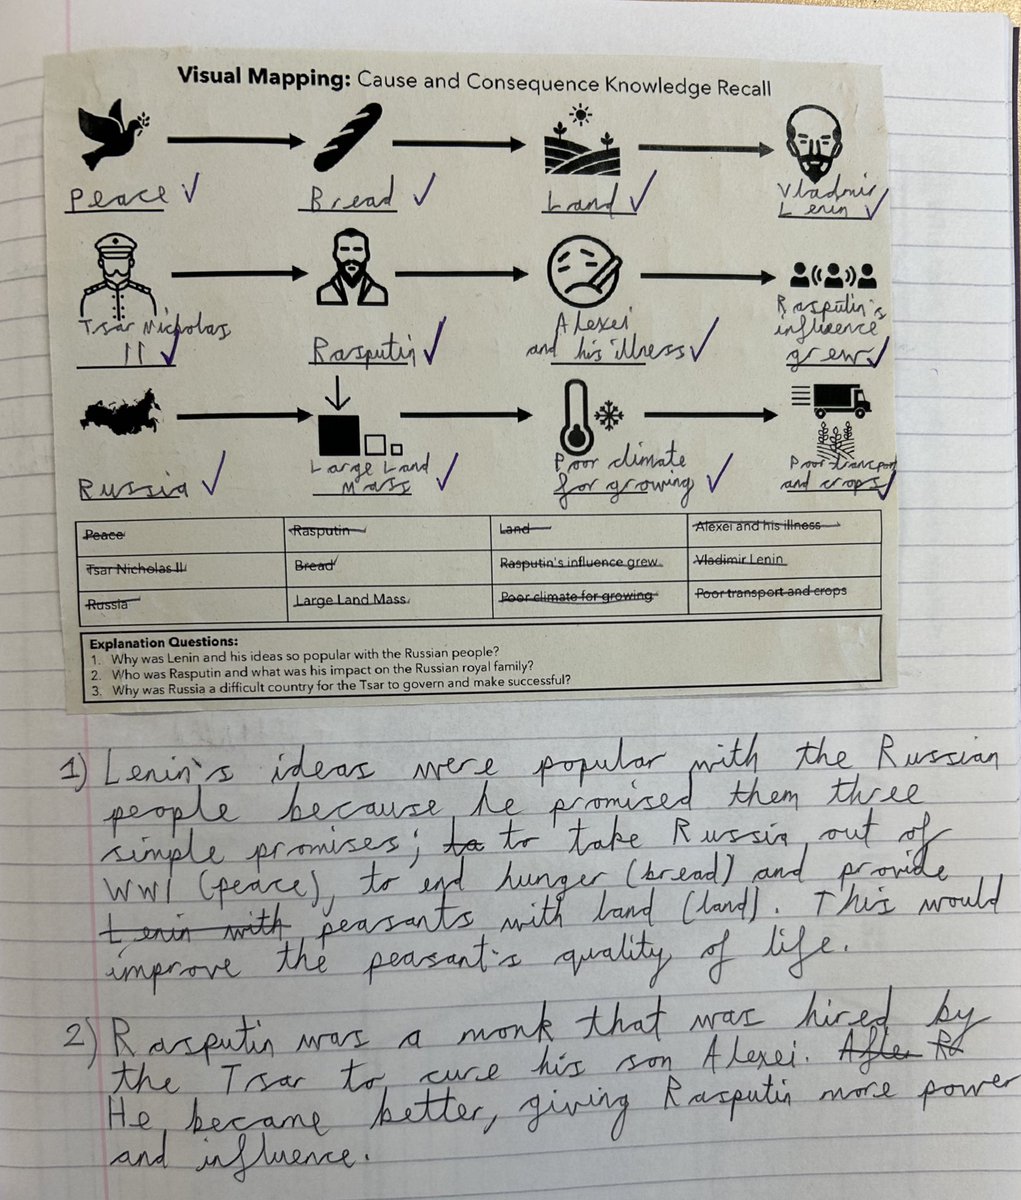 Visual Mapping: Cause and Consequence Knowledge Recall
Peace Bread Land Vladmir
Lenin
Tsar Nicholas
II
Rasputin
Alexei
and his illness
Rasputin's
influence
grew
Russia
Large Land
Mass
Poor climate
for growing
Poor transport
and crops
Peace Rasputin Land Alexei and his illness
Tsar Nicholas II Bread Rasputin's influence grew Vladimir Lenin
Russia Large Land Mass Poor climate for growing Poor transport and crops
Explanation Questions:
1. Why was Lenin and his ideas so popular with the Russian people?
2. Who was Rasputin and what was his impact on the Russian royal family?
3. Why was Russia a difficult country for the Tsar to govern and make successful?
1) Lenin's ideas were popular with the Russian
people because he promised them three
simple promises; to to take Russia out of
WW1 (peace), to end hunger (bread) and provide
Lenin with peasants with land (land). This would
improve the peasant's quality of life.
2) Rasputin was a monk that was hired by
the Tsar to cure his son Alexei. After Ra
He became better, giving Rasputin more power
and influence.